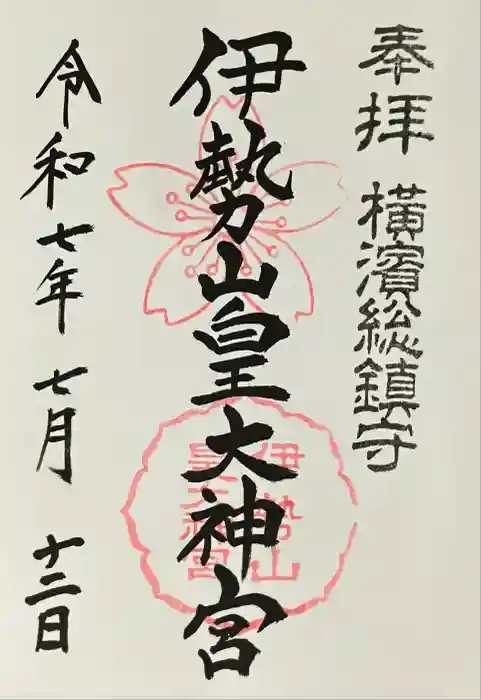 奉拝 横濱総鎮守
伊勢山皇大神宮
伊勢山
皇大神宮
令和七年七月十二日